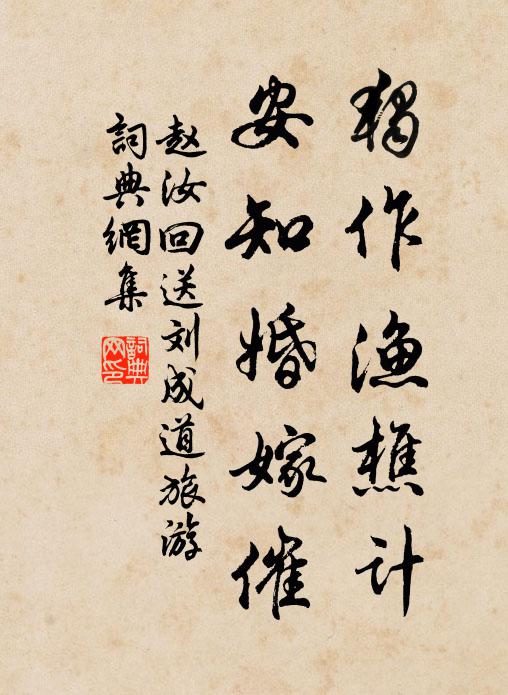 獨作漁樵計
安知婚嫁催
赵汝回送刘成道旅游
詞典網集
詞典網印